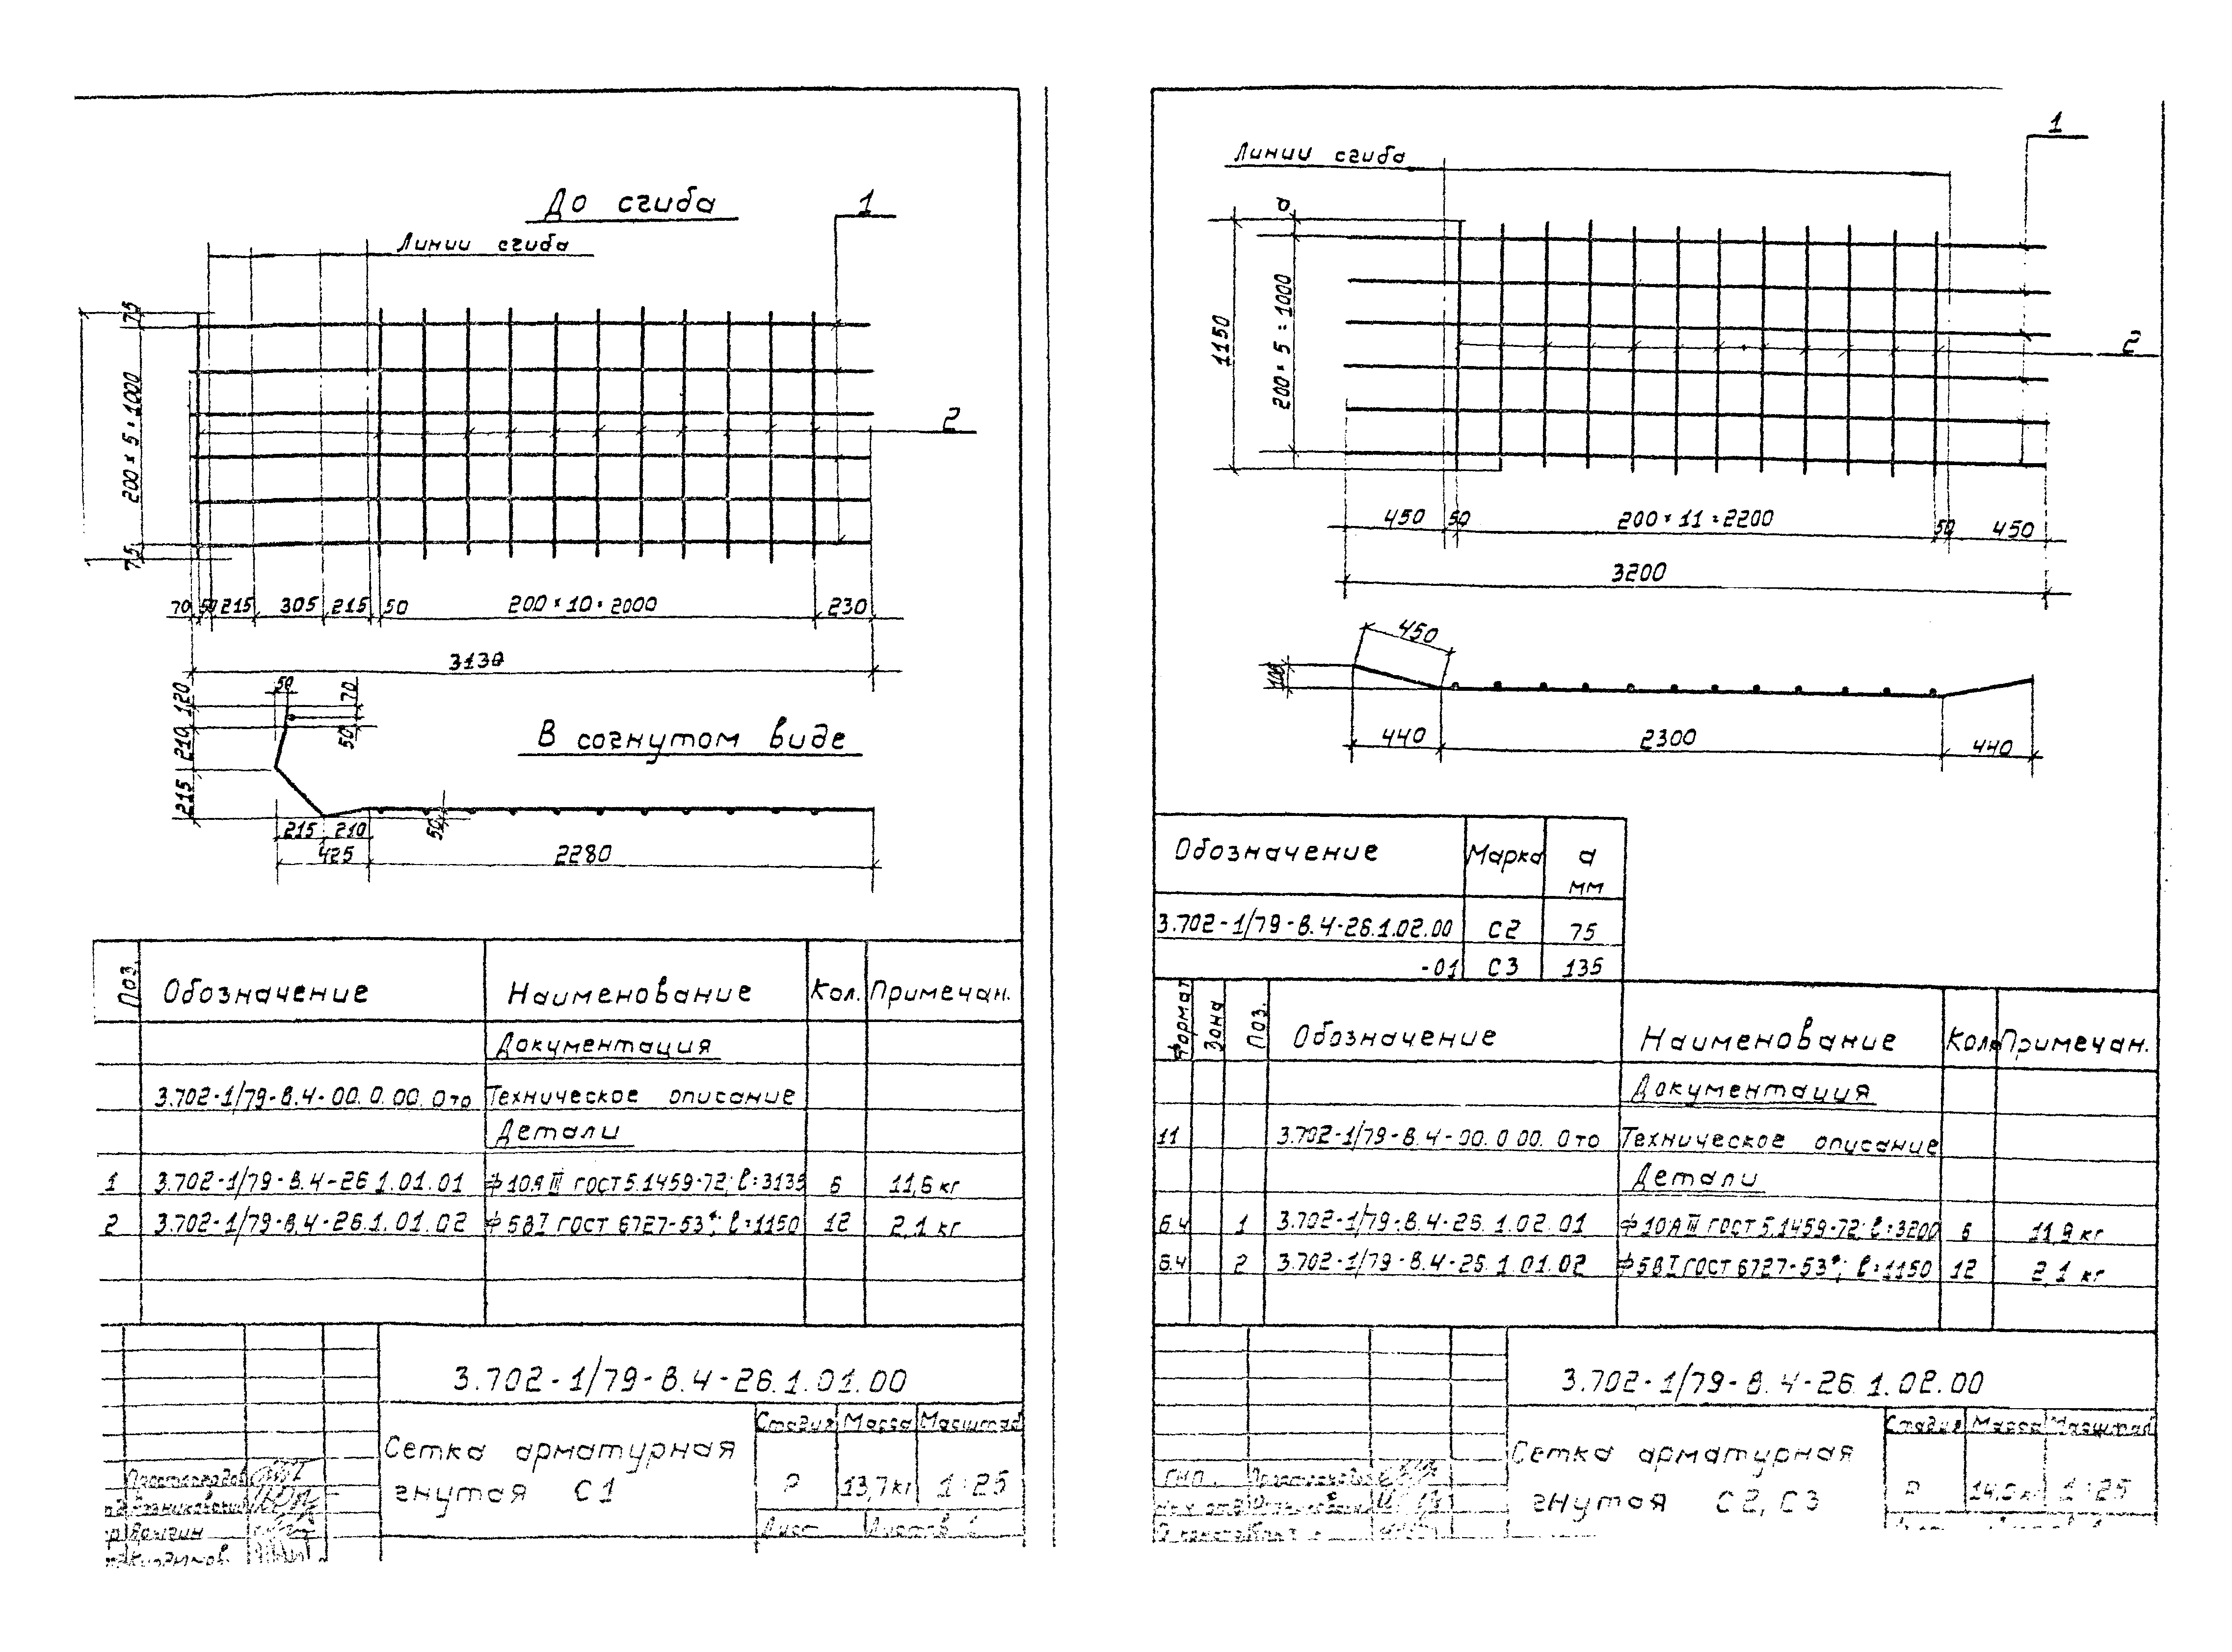 До сгиба
1
Линии сгиба
75
200 × 5 = 1000
75
2
70 50 215 305 215 50 200 × 10 = 2000 230
3130
120 50 70
210 50
215
В согнутом виде
215 210 50
425 2280
Поз. Обозначение Наименование Кол. Примечан.
Документация
3.702-1/79-В.4-00.0.00.0то Техническое описание
Детали
1 3.702-1/79-В.4-26.1.01.01 ф10АIII ГОСТ 5.1459-72; ℓ=3135 6 11,6 кг
2 3.702-1/79-В.4-26.1.01.02 ф5ВI ГОСТ 6727-53*; ℓ=1150 12 2,1 кг
3.702-1/79-В.4-26.1.01.00
Сетка арматурная
гнутая С1
Стадия Масса Масштаб
Р 13,7кг 1:25
Лист Листов 1
1
Линии сгиба
а
1150
200 × 5 = 1000
2
450 50 200 × 11 = 2200 50 450
3200
450
100
440 2300 440
Обозначение Марка а
мм
3.702-1/79-В.4-26.1.02.00 С2 75
-01 С3 135
Формат Зона Поз. Обозначение Наименование Кол. Примечан.
Документация
11 3.702-1/79-В.4-00.0.00.0то Техническое описание
Детали
б.ч 1 3.702-1/79-В.4-26.1.02.01 ф10АIII ГОСТ 5.1459-72; ℓ=3200 6 11,9 кг
б.ч 2 3.702-1/79-В.4-26.1.01.02 ф5ВI ГОСТ 6727-53*; ℓ=1150 12 2,1 кг
3.702-1/79-В.4-26.1.02.00
Сетка арматурная
гнутая С2, С3
Стадия Масса Масштаб
Р 14,0 кг 1:25
ГИП